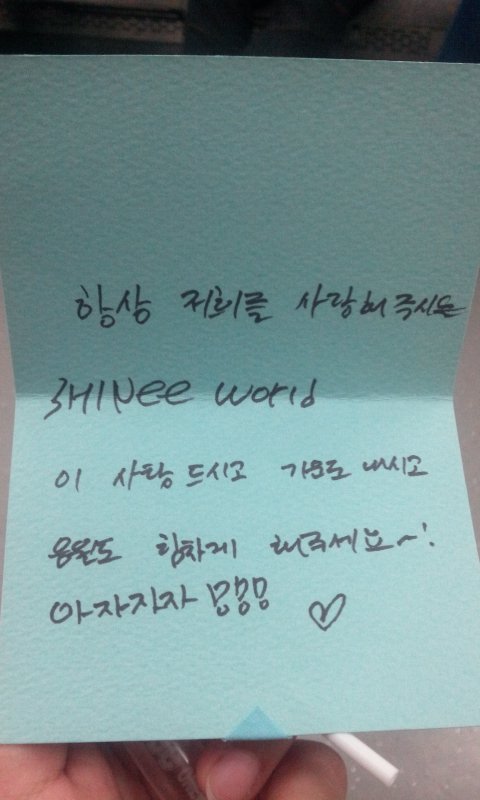 항상 저희를 사랑해주시는
SHINee world
이 사탕 드시고 기운도 내시고
응원도 힘차게 해주세요~!
아자자자 !!! ♡